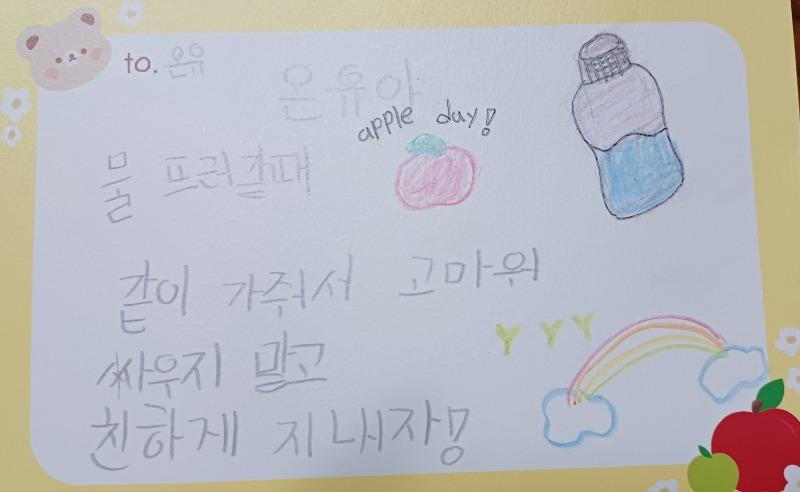 to. 온유
온유야
apple day!
물 프러갈때
같이 가줘서 고마워
싸우지 말고
친하게 지내자!